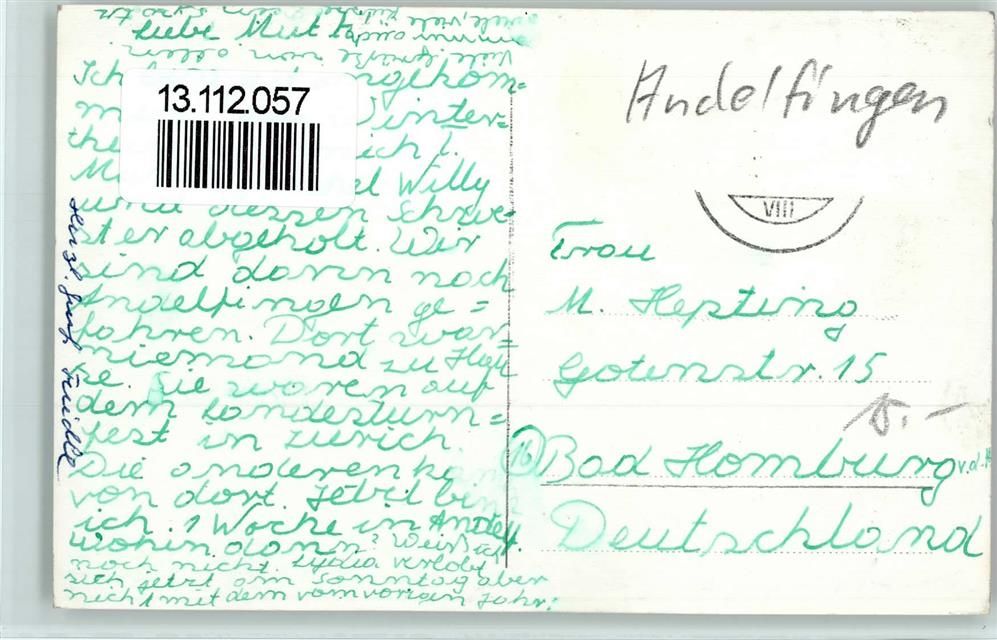 viele, viele
immer auch
viele Grüße von allen
Liebe Mutt
Ich ngekom=
m Winter=
thu ich l.
M el Willy
und dessen Schwe=
ster abgeholt. Wir
sind dann noch
Andelfingen ge=
fahren. Dort war
niemand zu Hau
se. Sie waren auf
dem Landesturn=
fest in Zürich.
Die anderen
von dort. Jetzt bin
ich 1 Woche in Andelf.
wohin dann? Weiß ich
noch nicht. Lydia verlobt
sich jetzt am Sonntag aber
nicht mit dem vom vorigen Jahr.
Herzl.
13.112.057
Andelfingen
VIII
Frau
M. Hepting
Gotenstr. 15
(16) Bad Homburg v.d.H
Deutschland